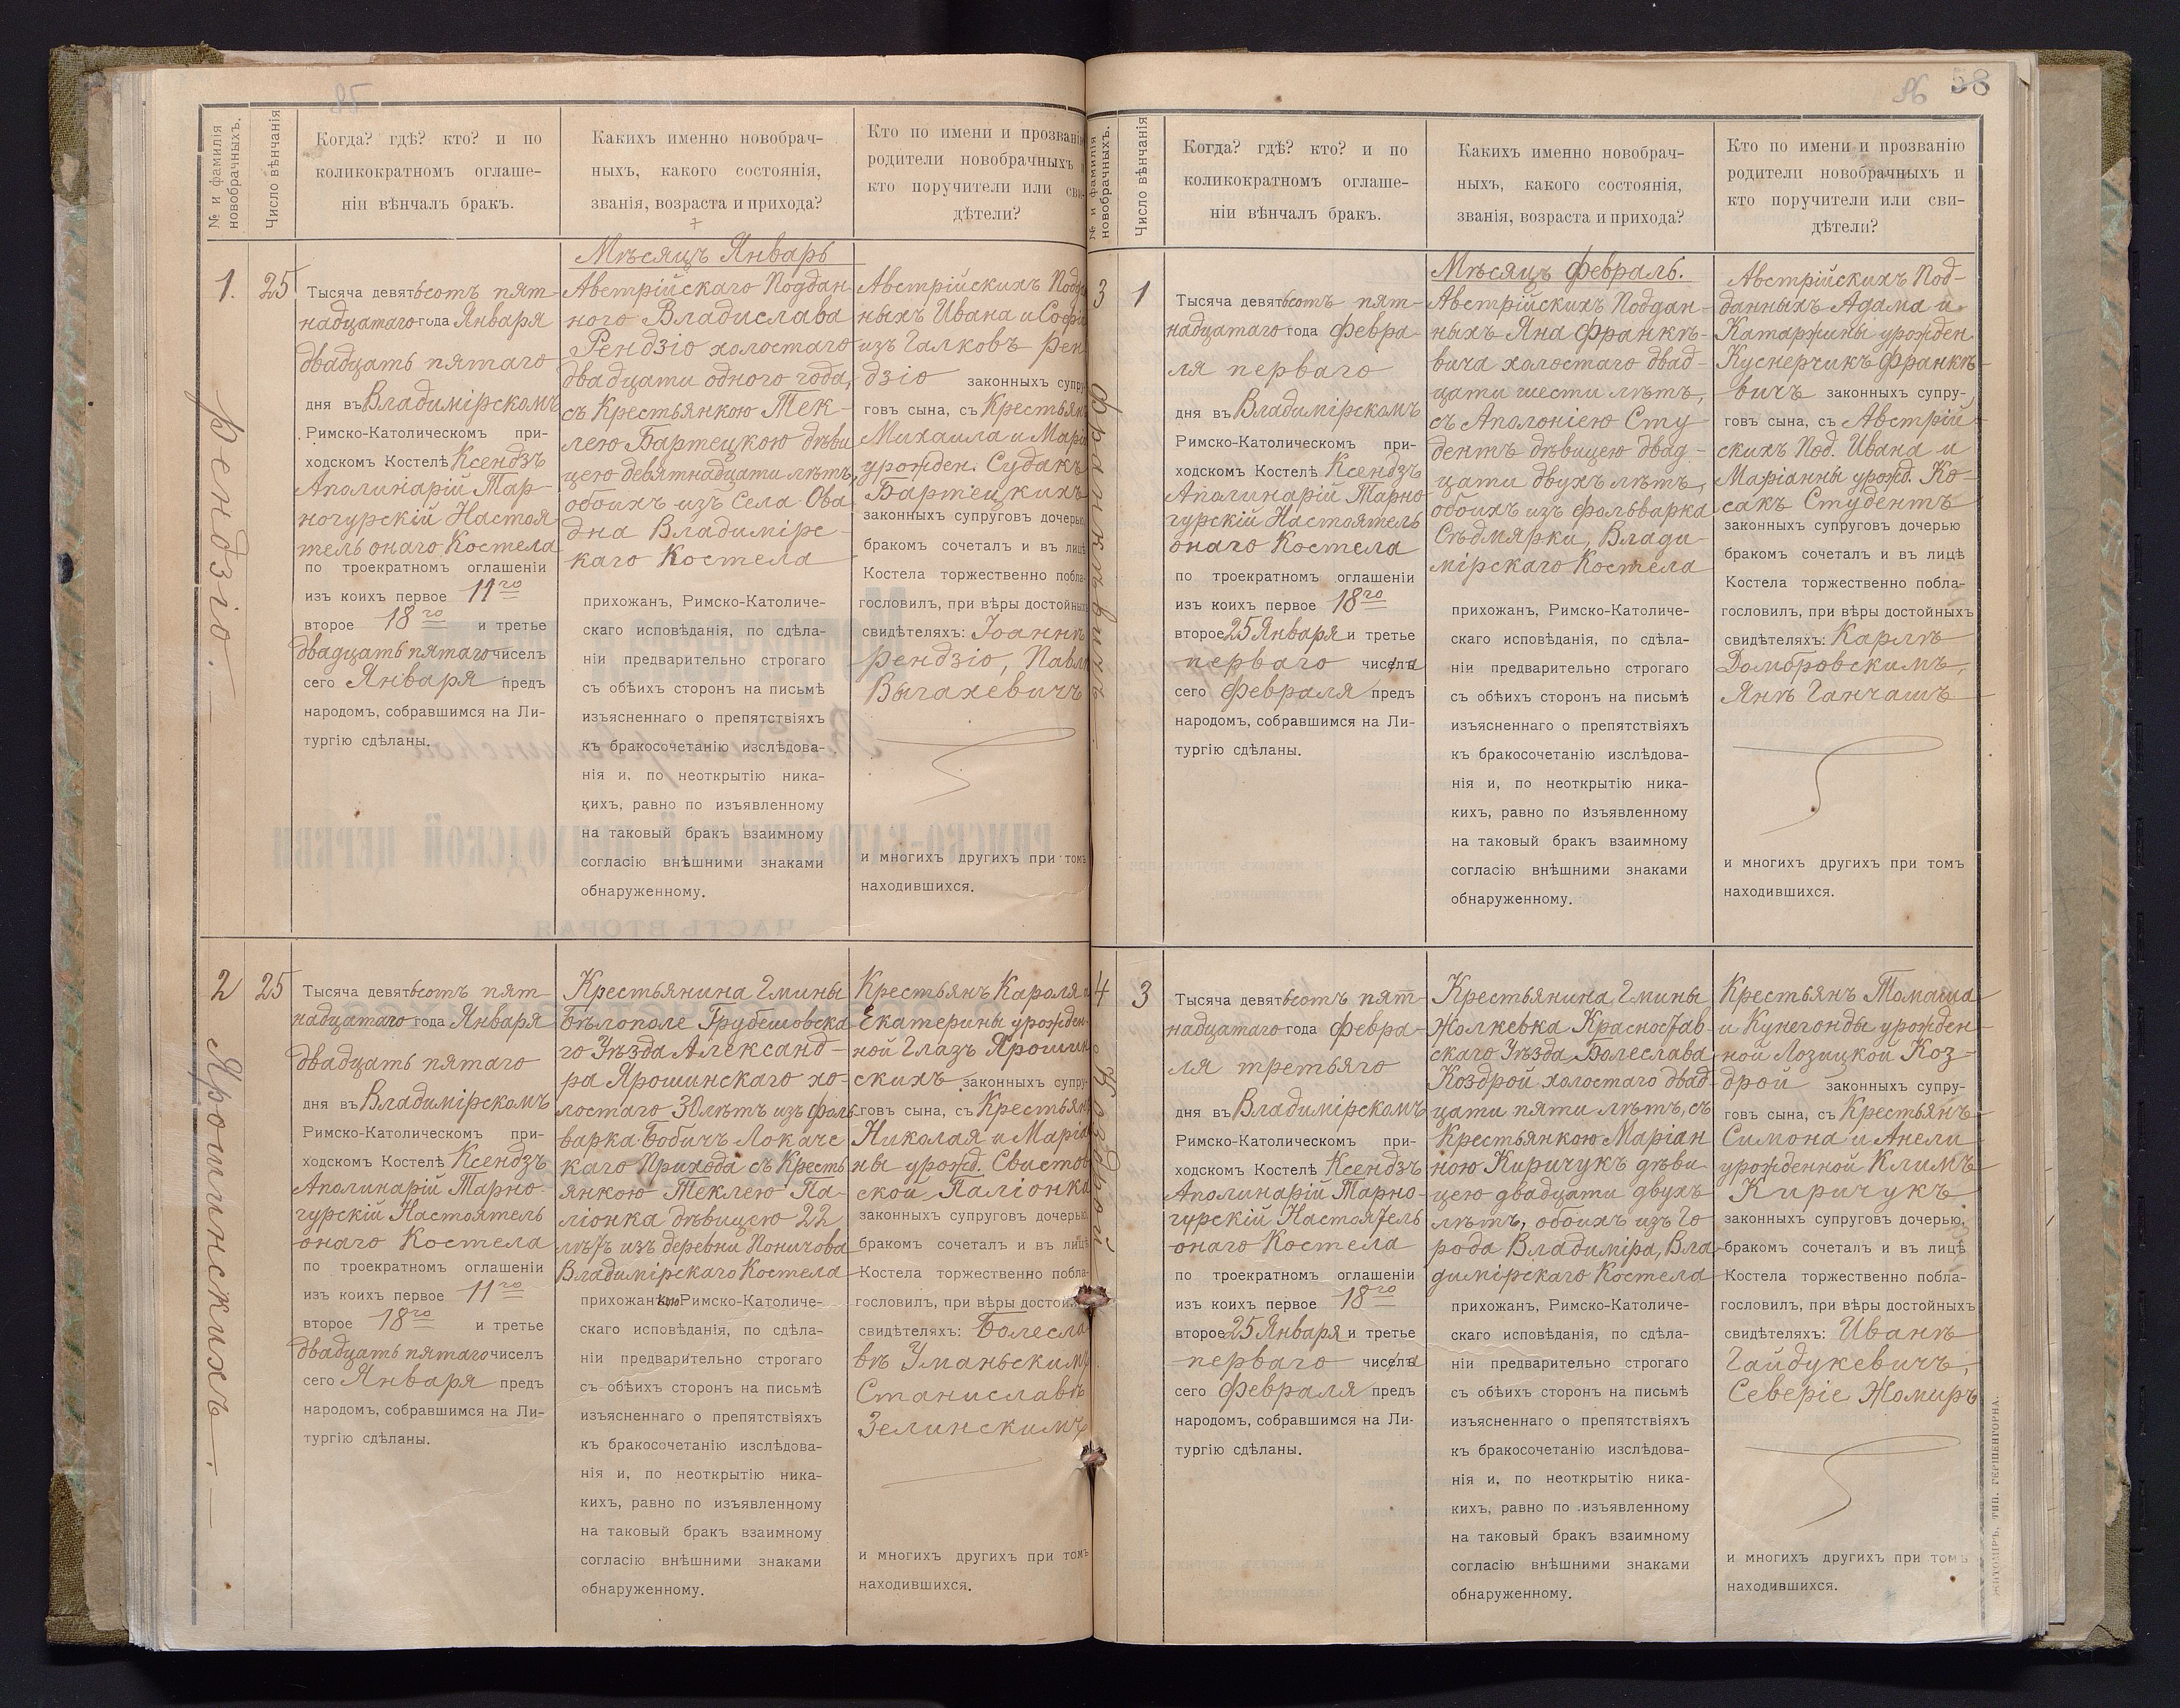 58
№ и фамилія новобрачныхъ.
Число вѣнчанія
Когда? гдѣ? кто? и по
коликократномъ оглаше-
ніи вѣнчалъ бракъ.
Какихъ именно новобрач-
ныхъ, какого состоянія,
званія, возраста и прихода?
Кто по имени и прозванію
родители новобрачныхъ и
кто поручители или сви-
дѣтели?
1.
Рендзіо.
25
Тысяча девятьсотъ пят-
надцатаго года Января
двадцать пятаго
дня въ Владимірскомъ
Римско-Католическомъ при-
ходскомъ Костелѣ Ксендзъ
Аполинарій Тар-
ногурскій Настоя
тель онаго Костела
по троекратномъ оглашеніи
изъ коихъ первое 11го
второе 18го и третье
двадцать пятаго чиселъ
сего Января предъ
народомъ, собравшимся на Ли-
тургію сдѣланы.
Мѣсяцъ Январь
Австрійскаго Поддан
ного Владислава
Рендзіо холостаго
двадцати одного года,
съ Крестьянкою Тек-
лею Бартецкою дѣви
цею девятнадцати лѣтъ,
обоихъ изъ Села Ова
дна Владимірс-
каго Костела
прихожанъ, Римско-Католиче-
скаго исповѣданія, по сдѣла-
ніи предварительно строгаго
съ обѣихъ сторонъ на письмѣ
изъясненнаго о препятствіяхъ
къ бракосочетанію изслѣдова-
нія и, по неоткрытію ника-
кихъ, равно по изъявленному
на таковый бракъ взаимному
согласію внѣшними знаками
обнаруженному.
Австрійскихъ Подда
ныхъ Ивана и Софіи
изъ Галковъ Рен
дзіо законныхъ супру-
говъ сына, съ Крестьян
Михаила и Маріи
урожден. Судакъ
Бартецкихъ
законныхъ супруговъ дочерью
бракомъ сочеталъ и въ лицѣ
Костела торжественно побла-
гословилъ, при вѣры достойныхъ
свидѣтеляхъ: Іоаннѣ
Рендзіо, Павлѣ
Выгахевичъ
и многихъ другихъ при томъ
находившихся.
2
Ярошинскихъ.
25
Тысяча девятьсотъ пят-
надцатаго года Января
двадцать пятаго
дня въ Владимірскомъ
Римско-Католическомъ при-
ходскомъ Костелѣ Ксендзъ
Аполинарій Тарно-
гурскій Настоятель
онаго Костела
по троекратномъ оглашеніи
изъ коихъ первое 11го
второе 18го и третье
двадцать пятаго чиселъ
сего Января предъ
народомъ, собравшимся на Ли-
тургію сдѣланы.
Крестьянина Гмины
Бѣлополе Грубешовска
го Уѣзда Александ-
ра Ярошинскаго хо-
лостаго 30 лѣтъ изъ фоль
варка Бобичъ Локаче
каго Прихода съ Кресть
янкою Теклею Па-
ліонка дѣвицею 22
лѣтъ изъ деревни Поничова
Владимірскаго Костела
прихожанкою Римско-Католиче-
скаго исповѣданія, по сдѣла-
ніи предварительно строгаго
съ обѣихъ сторонъ на письмѣ
изъясненнаго о препятствіяхъ
къ бракосочетанію изслѣдова-
нія и, по неоткрытію ника-
кихъ, равно по изъявленному
на таковый бракъ взаимному
согласію внѣшними знаками
обнаруженному.
Крестьянъ Кароля и
Екатерины урожден-
ной Глазъ Ярошин
скихъ законныхъ супру-
говъ сына, съ Крестьян
Николая и Маріан
ны урожд. Свистов
ской Паліонка
законныхъ супруговъ дочерью
бракомъ сочеталъ и въ лицѣ
Костела торжественно побла-
гословилъ, при вѣры достой
свидѣтеляхъ: Болесла
вѣ Уманьскимъ
Станиславѣ
Зелинскимъ
и многихъ другихъ при томъ
находившихся.
№ и фамилія новобрачныхъ.
Число вѣнчанія
Когда? гдѣ? кто? и по
коликократномъ оглаше-
ніи вѣнчалъ бракъ.
Какихъ именно новобрач-
ныхъ, какого состоянія,
званія, возраста и прихода?
Кто по имени и прозванію
родители новобрачныхъ и
кто поручители или сви-
дѣтели?
3
Франкѣвичъ
1
Тысяча девятьсотъ пят-
надцатаго года Февра-
ля перваго
дня въ Владимірскомъ
Римско-Католическомъ при-
ходскомъ Костелѣ Ксендзъ
Аполинарій Тарно-
гурскій Настоятель
онаго Костела
по троекратномъ оглашеніи
изъ коихъ первое 18го
второе 25 Января и третье
перваго числа
сего Февраля предъ
народомъ, собравшимся на Ли-
тургію сдѣланы.
Мѣсяцъ Февраль.
Австрійскихъ Поддан-
ныхъ Яна Франкѣ-
вича холостаго двад-
цати шести лѣтъ,
съ Аполоніею Сту
дентъ дѣвицею двад-
цати двухъ лѣтъ,
обоихъ изъ фольварка
Сѣдмярки, Влади-
мірскаго Костела
прихожанъ, Римско-Католиче-
скаго исповѣданія, по сдѣла-
ніи предварительно строгаго
съ обѣихъ сторонъ на письмѣ
изъясненнаго о препятствіяхъ
къ бракосочетанію изслѣдова-
нія и, по неоткрытію ника-
кихъ, равно по изъявленному
на таковый бракъ взаимному
согласію внѣшними знаками
обнаруженному.
Австрійскихъ Под-
данныхъ Адама и
Катаржины урожден
Куснерчикъ Франкѣ-
вичъ законныхъ супру-
говъ сына, съ Австрій
скихъ Под. Ивана и
Маріанны урожд. Ко-
сакъ Студентъ
законныхъ супруговъ дочерью
бракомъ сочеталъ и въ лицѣ
Костела торжественно побла-
гословилъ, при вѣры достойныхъ
свидѣтеляхъ: Карлѣ
Домбровскимъ,
Янѣ Ганчашъ
и многихъ другихъ при томъ
находившихся.
4
Коздрой
3
Тысяча девятьсотъ пят-
надцатаго года Февра-
ля третьяго
дня въ Владимірскомъ
Римско-Католическомъ при-
ходскомъ Костелѣ Ксендзъ
Аполинарій Тарно-
гурскій Настоятель
онаго Костела
по троекратномъ оглашеніи
изъ коихъ первое 18го
второе 25 Января и третье
перваго числа
сего Февраля предъ
народомъ, собравшимся на Ли-
тургію сдѣланы.
Крестьянина Гмины
Жолкевка Красностав-
скаго Уѣзда Болеслава
Коздрой холостаго двад-
цати пяти лѣтъ, съ
Крестьянкою Маріан
ною Киричукъ дѣви
цею двадцати двухъ
лѣтъ, обоихъ изъ Го
рода Владиміра, Вла
димірскаго Костела
прихожанъ, Римско-Католиче-
скаго исповѣданія, по сдѣла-
ніи предварительно строгаго
съ обѣихъ сторонъ на письмѣ
изъясненнаго о препятствіяхъ
къ бракосочетанію изслѣдова-
нія и, по неоткрытію ника-
кихъ, равно по изъявленному
на таковый бракъ взаимному
согласію внѣшними знаками
обнаруженному.
Крестьянъ Томаша
и Кунегонды урожден-
ной Лозицкой Коз-
дрой законныхъ супру-
говъ сына, съ Крестьянъ
Симона и Анели
урожденной Климъ
Киричукъ
законныхъ супруговъ дочерью,
бракомъ сочеталъ и въ лицѣ
Костела торжественно побла-
гословилъ, при вѣры достойныхъ
свидѣтеляхъ: Иванѣ
Гайдукевичъ,
Северіе Жомиръ
и многихъ другихъ при томъ
находившихся.
ЖИТОМІРЪ. ТИП. ГЕРШЕНГОРНА.